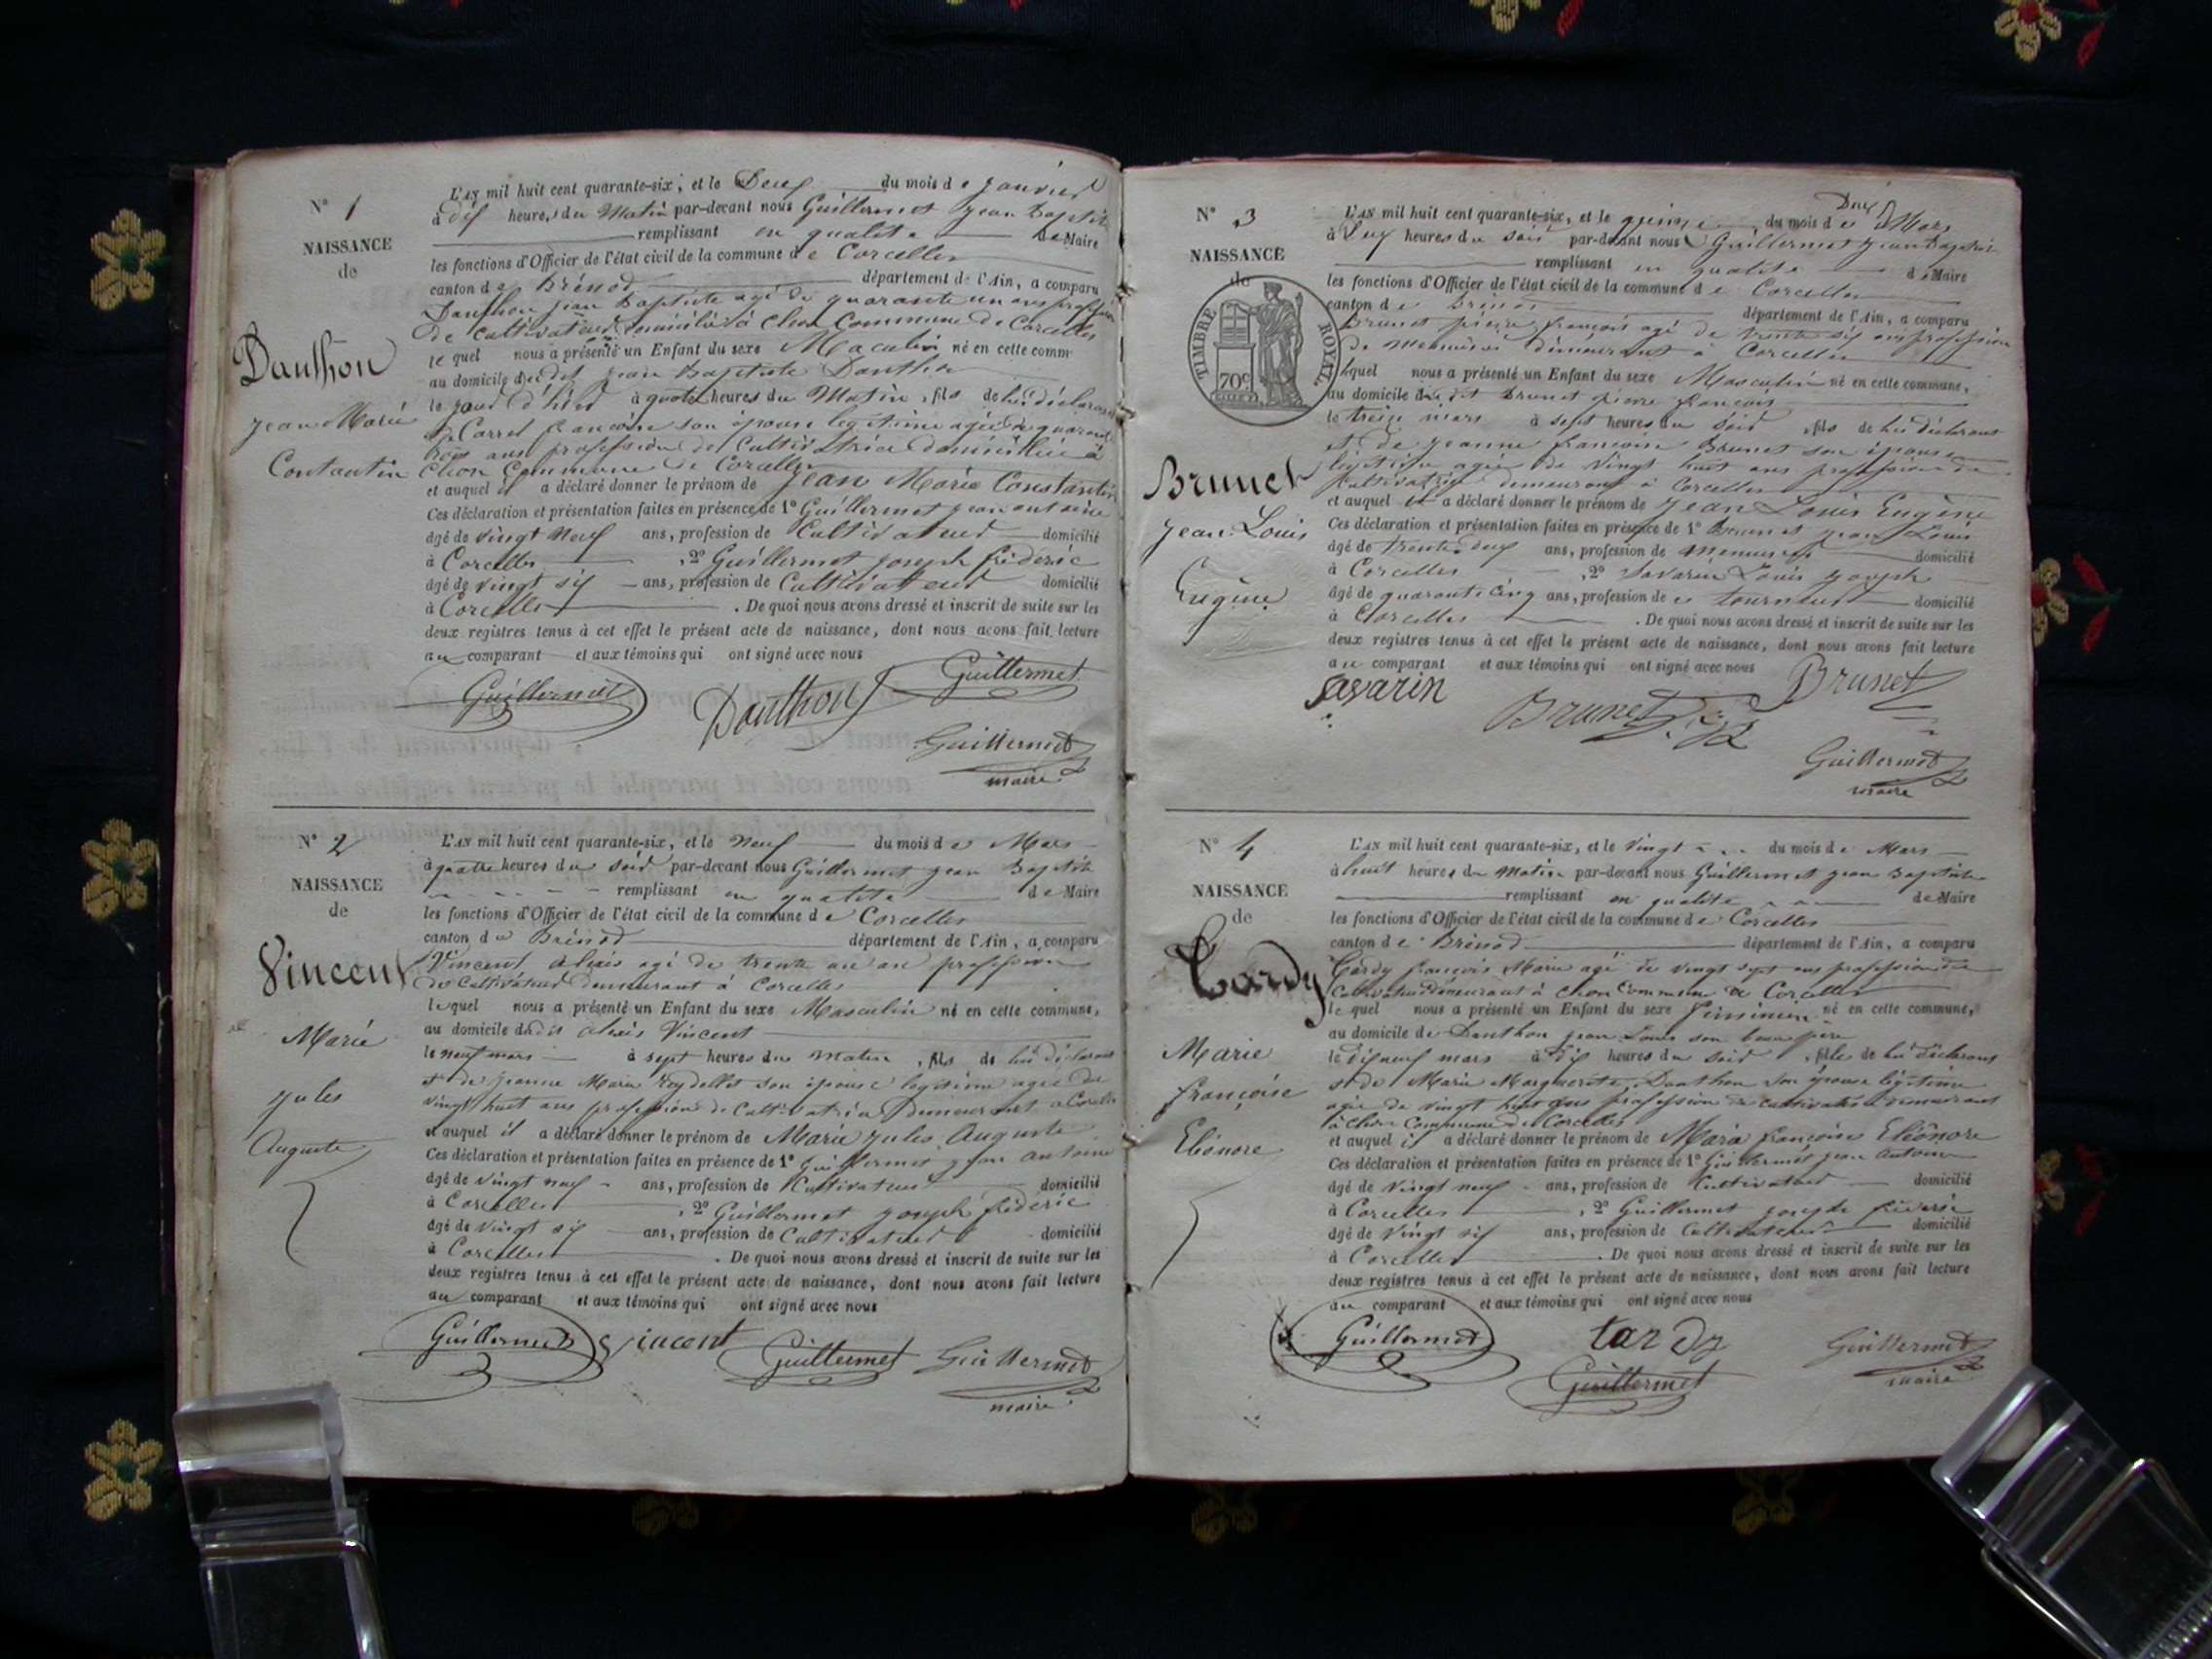 N° 1
NAISSANCE
de
Danthon
Jean Marie
Contantin
L'AN mil huit cent quarante-six, et le Deux du mois de Janvier
à dix heures du Matin par-devant nous Guillermet Jean Baptiste
remplissant en qualité de Maire
les fonctions d'Officier de l'état civil de la commune de Corcelles
canton de Brénod département de l'Ain, a comparu
Danthon jean Baptiste agé de quarante un ans profession
de cultivateur domicilié à Chon Commune de Corcelles
lequel nous a présenté un Enfant du sexe Maculin né en cette comm
au domicile dudit jean Baptiste Danthon
le jour d'hier à quatre heures du Matin, fils de lui déclarant
Carrel françoise son épouse légitime agée de quarante
trois ans profession de Cultivatrice domiciliée à
Chon Commune de Corcelles
et auquel il a déclaré donner le prénom de Jean Marie Constantin
Ces déclaration et présentation faites en présence de 1° Guillermet jean antoine
âgé de vingt neuf ans, profession de Cultivateur domicilié
à Corcelles , 2° Guillermet joseph fréderic
âgé de vingt six ans, profession de Cultivateur domicilié
à Corcelles . De quoi nous avons dressé et inscrit de suite sur les
deux registres tenus à cet effet le présent acte de naissance, dont nous avons fait lecture
au comparant et aux témoins qui ont signé avec nous
Guillermet Danthon Guillermet
Guillermet
maire
N° 2
NAISSANCE
de
Vincent
Marie
Jules
Auguste
L'AN mil huit cent quarante-six, et le Neuf du mois de Mars
à quatre heures du soir par-devant nous Guillermet jean Baptiste
remplissant en qualité de Maire
les fonctions d'Officier de l'état civil de la commune de Corcelles
canton de Brénod département de l'Ain, a comparu
Vincent alexis agé de trente un an profession
de cultivateur demeurant à Corcelles
lequel nous a présenté un Enfant du sexe Masculin né en cette commune,
au domicile dudit alexis Vincent
le neuf mars à sept heures du matin, fils de lui déclarant
et de jeanne Marie Reydellet son épouse légitime agée de
vingt huit ans profession de cultivatrice demeurant a Corcelles
et auquel il a déclaré donner le prénom de Marie jules Auguste
Ces déclaration et présentation faites en présence de 1° Guillermet jean antoine
âgé de vingt neuf ans, profession de Cultivateur domicilié
à Corcelles , 2° Guillermet joseph fréderic
âgé de vingt six ans, profession de Cultivateur domicilié
à Corcelles . De quoi nous avons dressé et inscrit de suite sur les
deux registres tenus à cet effet le présent acte de naissance, dont nous avons fait lecture
au comparant et aux témoins qui ont signé avec nous
Guillermet vincent Guillermet Guillermet
maire
N° 3
NAISSANCE
de
TIMBRE ROYAL
70c
Brunet
Jean Louis
Eugène
L'AN mil huit cent quarante-six, et le quinze du mois de Mars
à Deux heures du soir par-devant nous Guillermet jean Baptiste
remplissant en qualité de Maire
les fonctions d'Officier de l'état civil de la commune de Corcelles
canton de Brénod département de l'Ain, a comparu
Brunet pierre françois agé de trente six ans profession
de Menuisier demeurant à Corcelles
lequel nous a présenté un Enfant du sexe Masculin né en cette commune,
au domicile dudit Brunet pierre françois
le treize mars à sept heures du soir, fils de lui déclarant
et de jeanne françoise Brunet son épouse
légitime agée de vingt huit ans profession de
cultivatrice demeurant à Corcelles
et auquel il a déclaré donner le prénom de Jean Louis Eugène
Ces déclaration et présentation faites en présence de 1° Brunet jean Louis
âgé de trente deux ans, profession de menuisier domicilié
à Corcelles , 2° Savarin Louis joseph
âgé de quarante cinq ans, profession de tourneur domicilié
à Corcelles . De quoi nous avons dressé et inscrit de suite sur les
deux registres tenus à cet effet le présent acte de naissance, dont nous avons fait lecture
au comparant et aux témoins qui ont signé avec nous
Savarin Brunet Brunet
Guillermet
maire
N° 4
NAISSANCE
de
Tardy
Marie
françoise
Eléonore
L'AN mil huit cent quarante-six, et le vingt du mois de Mars
à huit heures du Matin par-devant nous Guillermet jean Baptiste
remplissant en qualité de Maire
les fonctions d'Officier de l'état civil de la commune de Corcelles
canton de Brénod département de l'Ain, a comparu
Tardy françois Marie agé de vingt sept ans profession de
cultivateur demeurant à Chon Commune de Corcelles
lequel nous a présenté un Enfant du sexe féminin né en cette commune,
au domicile de Danthon jean Louis son beau père
le dix neuf mars à dix heures du soir, fille de lui déclarant
et de Marie Marguerite Danthon son épouse légitime
agée de vingt huit ans profession de cultivatrice demeurant
à Chon Commune de Corcelles
et auquel il a déclaré donner le prénom de Marie françoise Eléonore
Ces déclaration et présentation faites en présence de 1° Guillermet jean antoine
âgé de vingt neuf ans, profession de Cultivateur domicilié
à Corcelles , 2° Guillermet joseph fréderic
âgé de vingt six ans, profession de Cultivateur domicilié
à Corcelles . De quoi nous avons dressé et inscrit de suite sur les
deux registres tenus à cet effet le présent acte de naissance, dont nous avons fait lecture
au comparant et aux témoins qui ont signé avec nous
Guillermet tardy Guillermet
Guillermet
maire